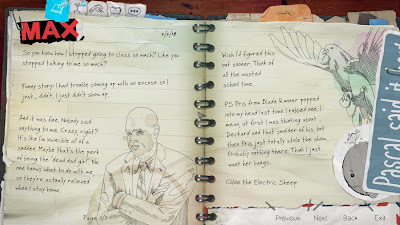 MAX
6/5/08
So you know how I stopped going to class so much? Like you
stopped talking to me so much?
Funny story: I had trouble coming up with an excuse so I
just... didn't. I just didn't show up.
And it was fine. Nobody said
anything to me. Crazy, right?
It's like I'm invisible all of a
sudden. Maybe that's the perk
of being the "dead dad girl". No
one knows what to do with me,
so they're actually relieved
when I stay home.
Page 3/3
Wish I'd figured this
out sooner. Think of
all the wasted
school time.
PS Pris from Blade Runner popped
into my head last time I rabbed one. I
mean, at first I was thinking about
Deckard and that spider of his, but
then Pris just totally stole the show.
Probably nothing there. Think I just
want her bangs.
Chloe the Electric Sheep
Pascal said it
Previous Next Back Exit